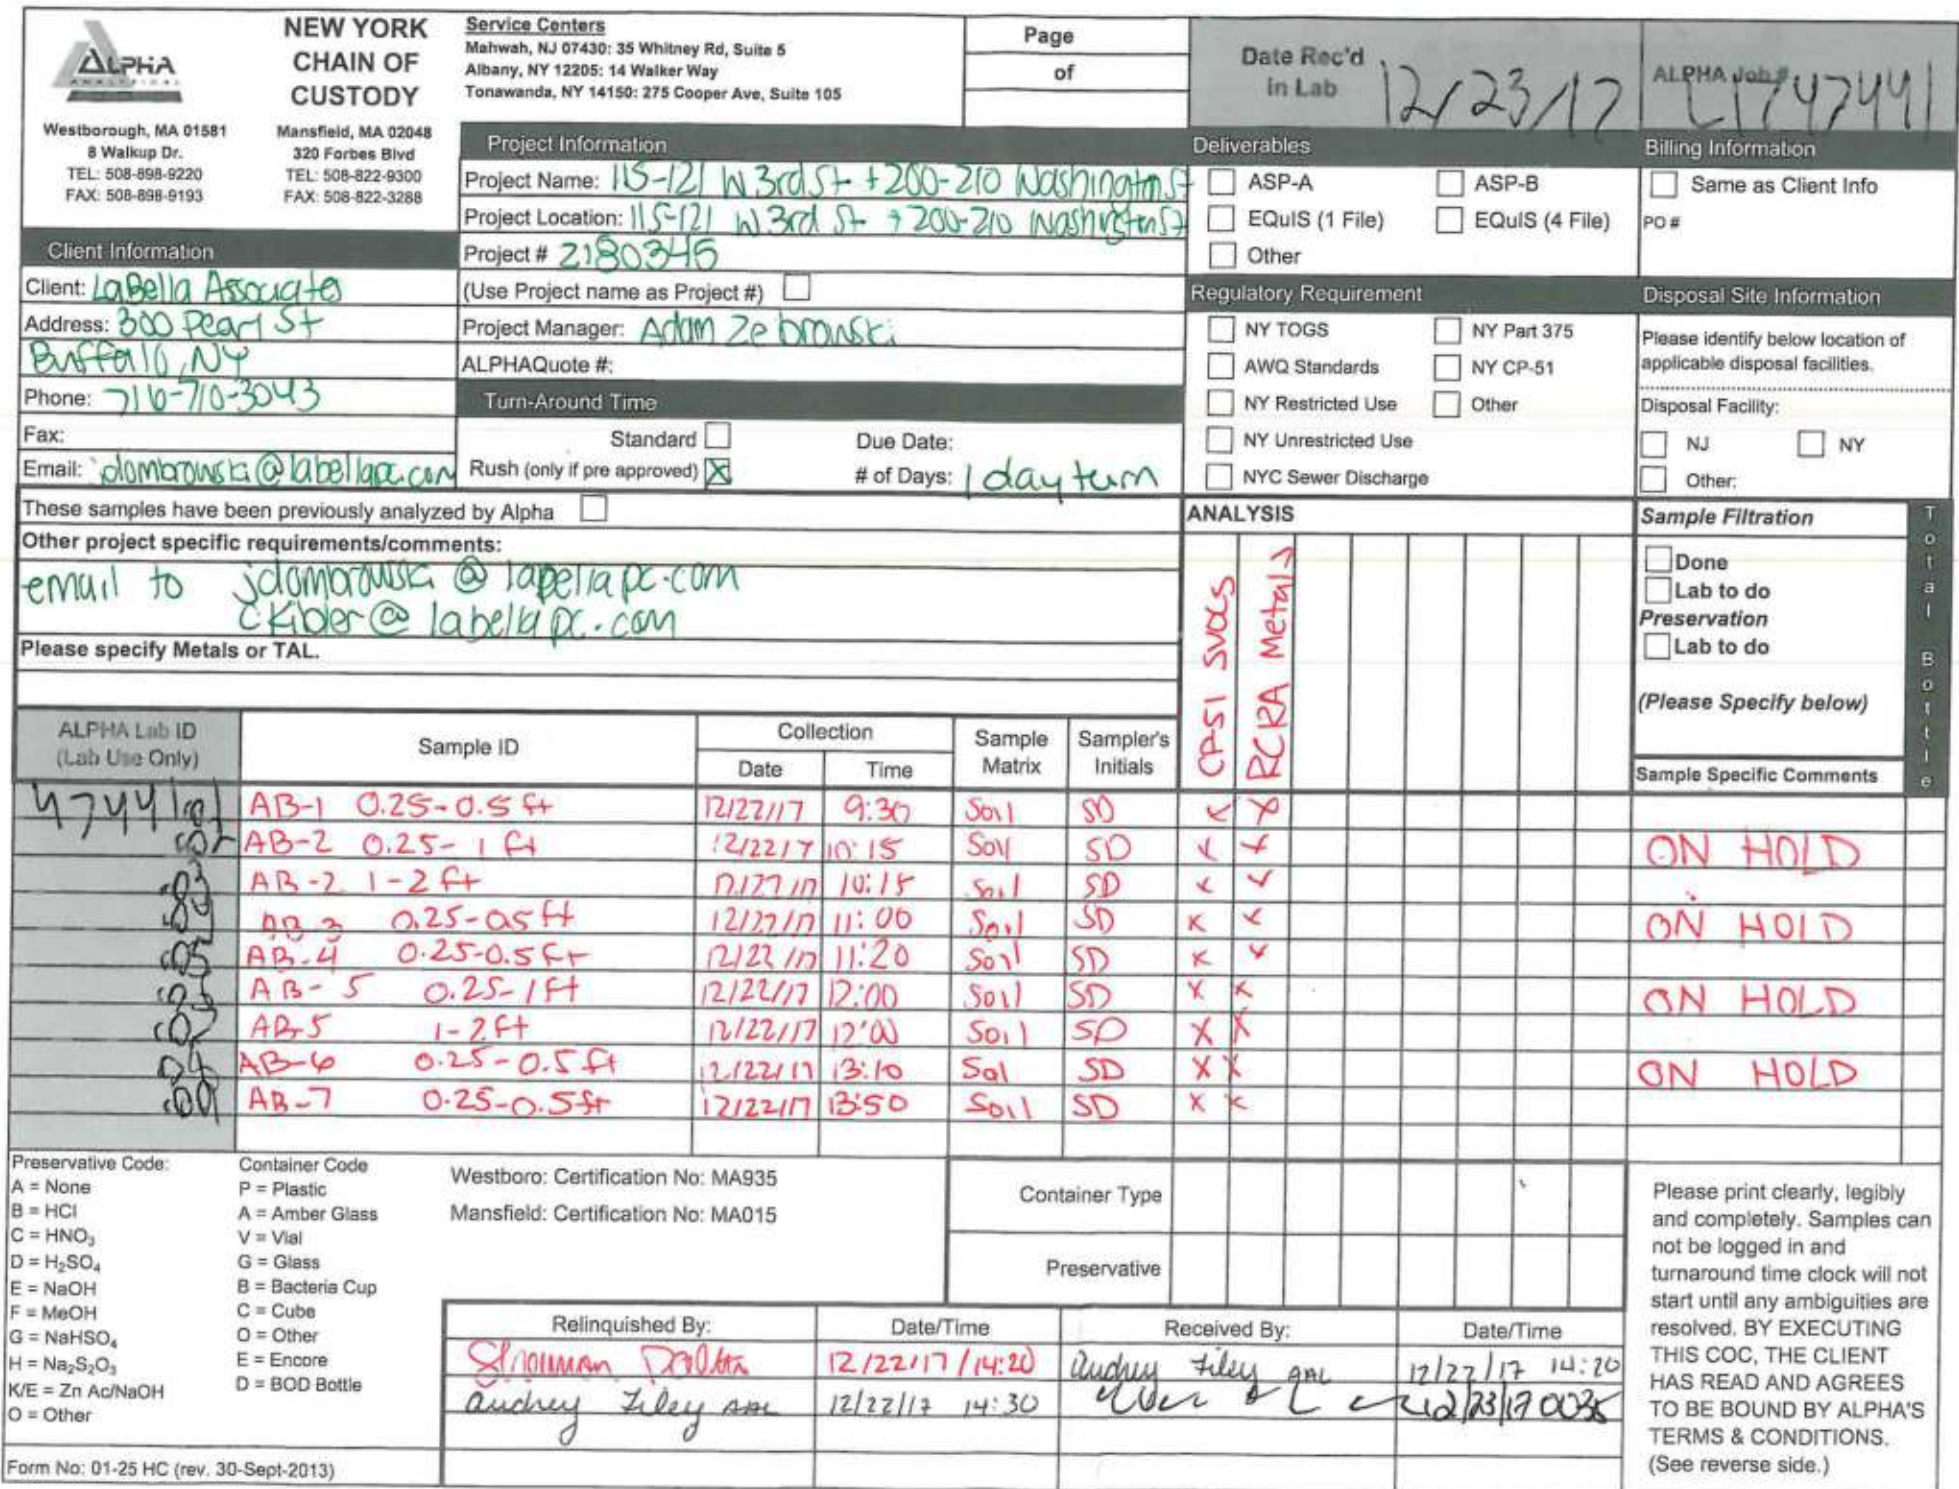 ALPHA
ANALYTICAL
NEW YORK
CHAIN OF
CUSTODY
Westborough, MA 01581
8 Walkup Dr.
TEL: 508-898-9220
FAX: 508-898-9193
Mansfield, MA 02048
320 Forbes Blvd
TEL: 508-822-9300
FAX: 508-822-3288
Service Centers
Mahwah, NJ 07430: 35 Whitney Rd, Suite 5
Albany, NY 12205: 14 Walker Way
Tonawanda, NY 14150: 275 Cooper Ave, Suite 105
Page
of
Date Rec'd
in Lab 12/23/17
ALPHA Job #
L1747441
Client Information
Client: LaBella Associates
Address: 300 Pearl St
Buffalo, NY
Phone: 716-710-3043
Fax:
Email: jdombrowski@labellapc.com
Project Information
Project Name: 115-121 W 3rd St + 200-210 Washington St
Project Location: 115-121 W 3rd St + 200-210 Washington St
Project # 2180345
(Use Project name as Project #)
Project Manager: Adam Zebrowski
ALPHAQuote #:
Turn-Around Time
Standard
Due Date:
Rush (only if pre approved) X
# of Days: 1 day turn
Deliverables
ASP-A
ASP-B
EQuIS (1 File)
EQuIS (4 File)
Other
Regulatory Requirement
NY TOGS
NY Part 375
AWQ Standards
NY CP-51
NY Restricted Use
Other
NY Unrestricted Use
NYC Sewer Discharge
Billing Information
Same as Client Info
PO #
Disposal Site Information
Please identify below location of
applicable disposal facilities.
Disposal Facility:
NJ
NY
Other:
These samples have been previously analyzed by Alpha
Other project specific requirements/comments:
email to jdombrowski @ labellapc.com
CKibler@ labellapc.com
Please specify Metals or TAL.
ANALYSIS
CP-51 SVOCs
RCRA Metals
Sample Filtration
Done
Lab to do
Preservation
Lab to do
(Please Specify below)
Total Bottle
ALPHA Lab ID
(Lab Use Only)
Sample ID
Collection
Date
Time
Sample
Matrix
Sampler's
Initials
Sample Specific Comments
47441 AB-1 0.25-0.5 ft 12/22/17 9:30 Soil SD X X
AB-2 0.25-1 ft 12/22/17 10:15 Soil SD X X ON HOLD
AB-2 1-2 ft 12/22/17 10:15 Soil SD X X
AB-3 0.25-0.5 ft 12/22/17 11:00 Soil SD X X ON HOLD
AB-4 0.25-0.5 ft 12/22/17 11:20 Soil SD X X
AB-5 0.25-1 ft 12/22/17 12:00 Soil SD X X ON HOLD
AB-5 1-2 ft 12/22/17 12:00 Soil SD X X
AB-6 0.25-0.5 ft 12/22/17 13:10 Soil SD X X ON HOLD
AB-7 0.25-0.5 ft 12/22/17 13:50 Soil SD X X
Preservative Code:
A = None
B = HCl
C = HNO₃
D = H₂SO₄
E = NaOH
F = MeOH
G = NaHSO₄
H = Na₂S₂O₃
K/E = Zn Ac/NaOH
O = Other
Container Code
P = Plastic
A = Amber Glass
V = Vial
G = Glass
B = Bacteria Cup
C = Cube
O = Other
E = Encore
D = BOD Bottle
Westboro: Certification No: MA935
Mansfield: Certification No: MA015
Container Type
Preservative
Relinquished By:
Date/Time
Received By:
Date/Time
12/22/17/14:20 Audrey Filey AAL 12/22/17 14:20
Audrey Filey AAL 12/22/17 14:30 12/23/17 0035
Please print clearly, legibly
and completely. Samples can
not be logged in and
turnaround time clock will not
start until any ambiguities are
resolved. BY EXECUTING
THIS COC, THE CLIENT
HAS READ AND AGREES
TO BE BOUND BY ALPHA'S
TERMS & CONDITIONS.
(See reverse side.)
Form No: 01-25 HC (rev. 30-Sept-2013)